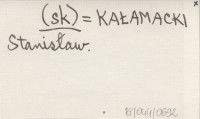 (sk) = KAŁAMACKI
Stanisław.
15/044/0692